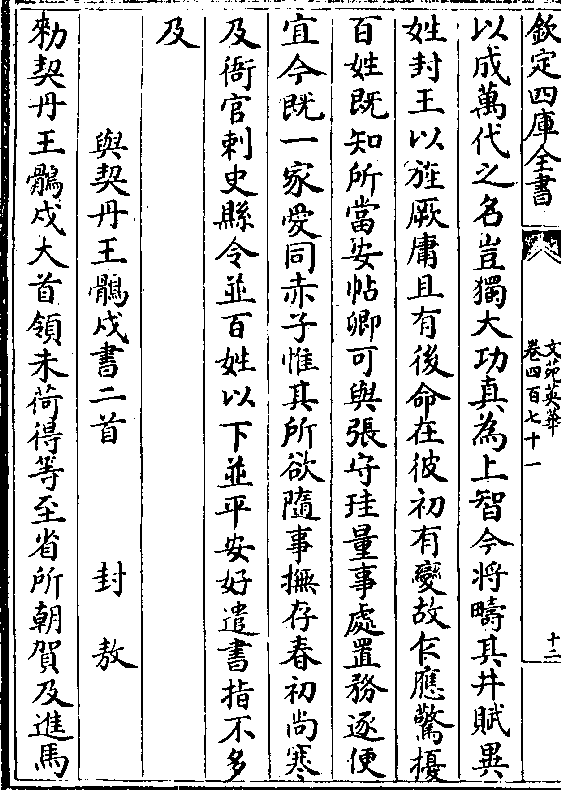 欽定四庫全書
文苑英華
卷四百七十一
十二
以成萬代之名豈獨大功真為上智今将疇其井賦異
姓封王以旌厥庸且有後命在彼初有變故乍應驚擾
百姓既知所當安帖卿可與張守珪量事處置務逐便
宜今既一家愛同赤子惟其所欲隨事撫存春初尚寒
及衙官刺史縣令並百姓以下並平安好遣書指不多
及
與契丹王鶻戍書二首 封敖
勑契丹王鶻戍大首領末荷得等至省所朝賀及進馬